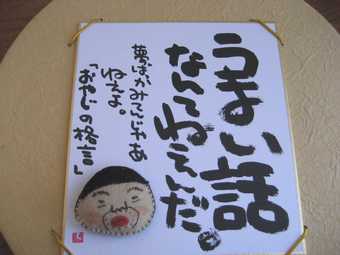 うまい話
なんてねえんだ。
夢ばかみてんじゃあ
ねえよ。
「おやじの格言」